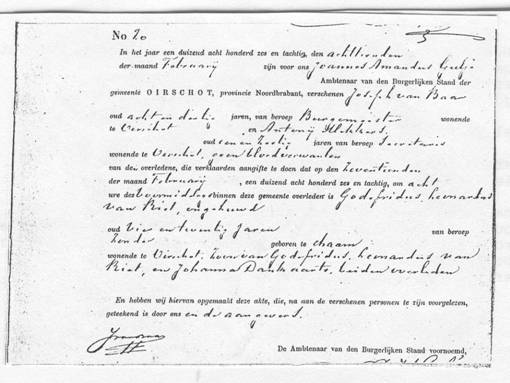 No 20
In het jaar een duizend acht honderd zes en tachtig, den achttienden
der maand Februarij zijn voor ons Joannes Amandus
Ambtenaar van den Burgerlijken Stand der
gemeente OIRSCHOT, provincie Noordbrabant, verschenen Joseph van Baar
oud acht en dertig jaren, van beroep Burgemeester wonende
te Oirschot en Antonij
oud een en zestig jaren van beroep Secretaris
wonende te Oirschot, geen bloedverwanten
van den overledene, die verklaarden aangifte te doen dat op den zeventienden
der maand Februarij, een duizend acht honderd zes en tachtig, om acht
ure des voormiddags binnen deze gemeente overleden is Godefridus, Leonardus
van Riel, ongehuwd
oud vier en twintig jaren van beroep
zonder geboren te Chaam
wonende te Oirschot, zoon van Godefridus, Leonardus van
Riel, en Johanna Dankaarts, beiden overleden
En hebben wij hiervan opgemaakt deze akte, die, na aan de verschenen personen te zijn voorgelezen,
geteekend is door ons en de aangevers.
De Ambtenaar van den Burgerlijken Stand voornoemd,